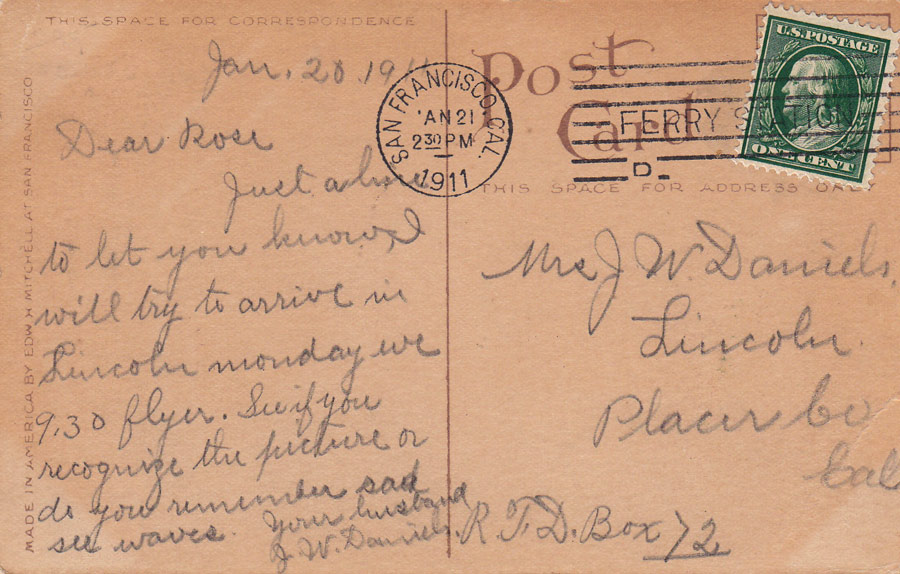 THIS SPACE FOR CORRESPONDENCE
Jan. 20 1911
Dear Rose
Just a line
to let you know I
will try to arrive in
Lincoln monday eve
9.30 flyer. See if you
recognize the picture or
do you remember sad
see waves.
Your husband
J W. Daniels.
MADE IN AMERICA BY EDW H MITCHELL AT SAN FRANCISCO
Post
Card
SAN FRANCISCO, CAL.
JAN 21
2 30 PM
1911
FERRY STATION
D
U.S. POSTAGE
ONE CENT
THIS SPACE FOR ADDRESS ONLY
Mrs J W. Daniels,
Lincoln.
Placer Co
Cal
R. F. D. Box 72